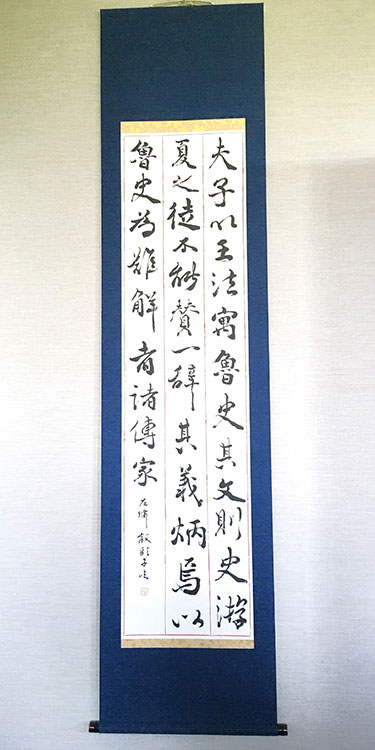 夫子以王法寓魯史其文則史游
夏之徒不能賛一辭其義炳焉以
魯史為難解者諸傳家